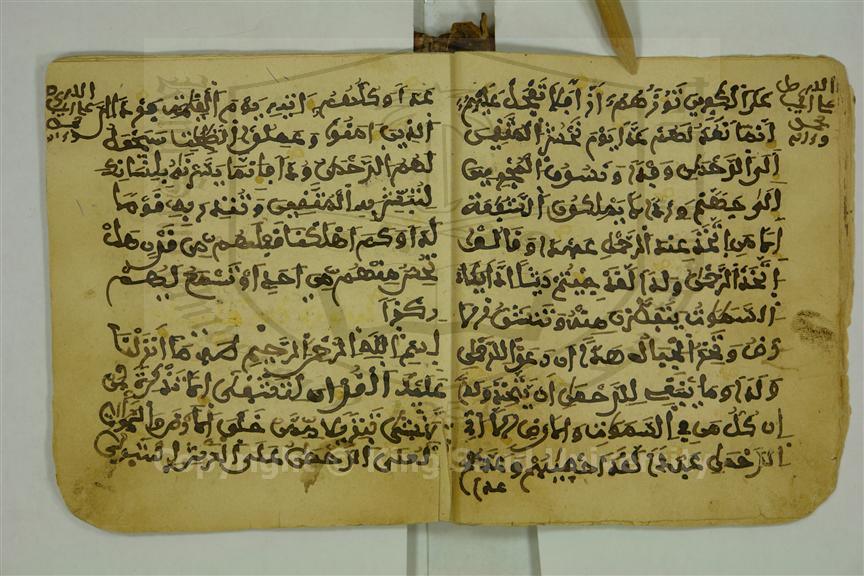 على الكفرين تؤزهم أزا فلا تعجل عليهم
إنما نعد لهم عدا يوم نحشر المتقين
إلى الرحمن وفدا ونسوق المجرمين
إلى جهنم وردا لا يملكون الشفعة
إلا من اتخذ عند الرحمن عهدا وقالوا
اتخذ الرحمن ولدا لقد جيتم شيئا إدا يكاد
السموت يتفطرن منه وتنشق الا
رض وتخر الجبال هدا ان دعوا للرحمن
ولدا وما ينبغي للرحمن ان يتخذ ولدا
إن كل من في السموت والارض إلا اتى
الرحمن عبدا لقد احصيهم وعدهم
عدا
عدا وكلهم اتيه يوم القيمة فردا إن
الذين امنوا وعملوا الصلحت سيجعل
لهم الرحمن ودا فإنما يسرنه بلسانك
لتبشر به المتقين وتنذر به قوما
لدا وكم اهلكنا قبلهم من قرن هل
تحس منهم من احد او تسمع لهم
ركزا
بسم الله الرحمن الرحيم طه ما انزلنا
عليك القران لتشقى إلا تذكرة لمن
يخشى تنزيلا ممن خلق الارض والسموت
العلى الرحمن على العرش استوى